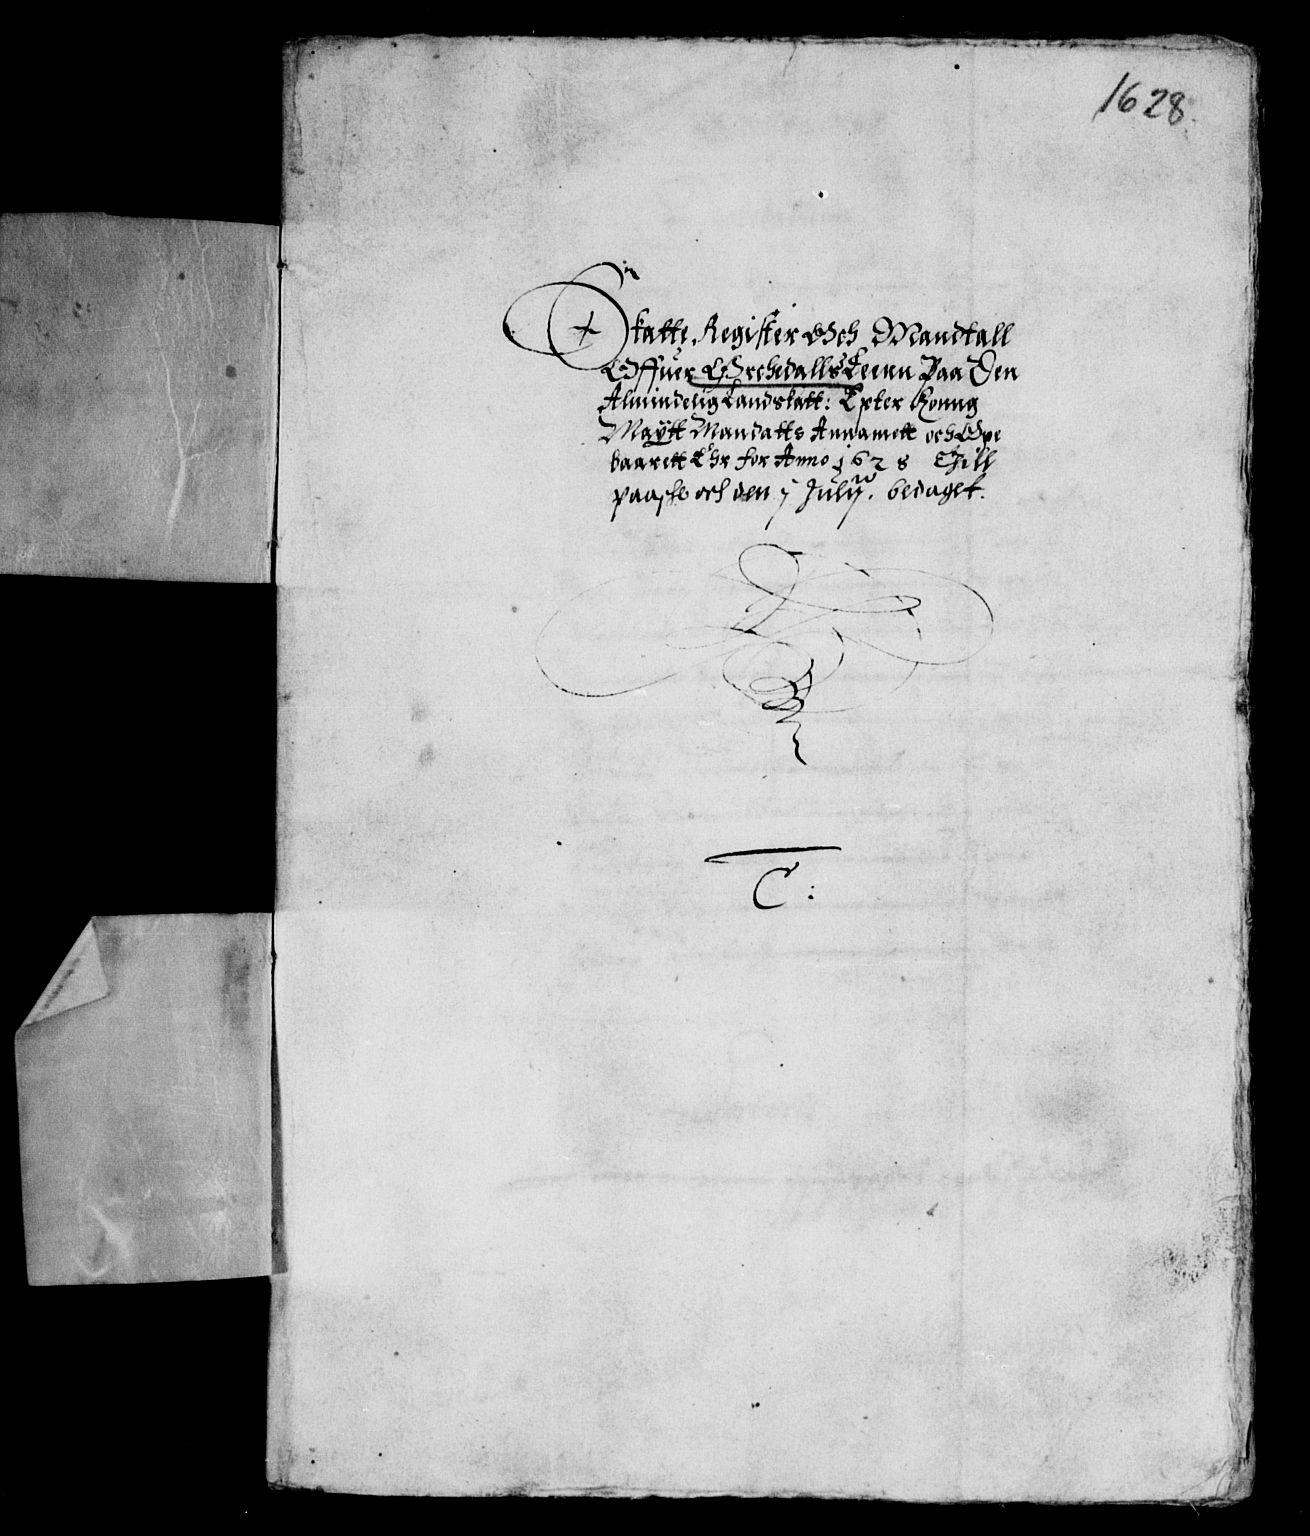 1628.
Skatte Register Och Mandtall
Offuer Orchedalls Leenn Paa Den
Almindelig Landskatt: Epter Konng
Maÿtt Mandatts Annamett och Ope
baarett Ehr for Anno 1628 Thill
paaske och den j Julij. bedaget.
C: